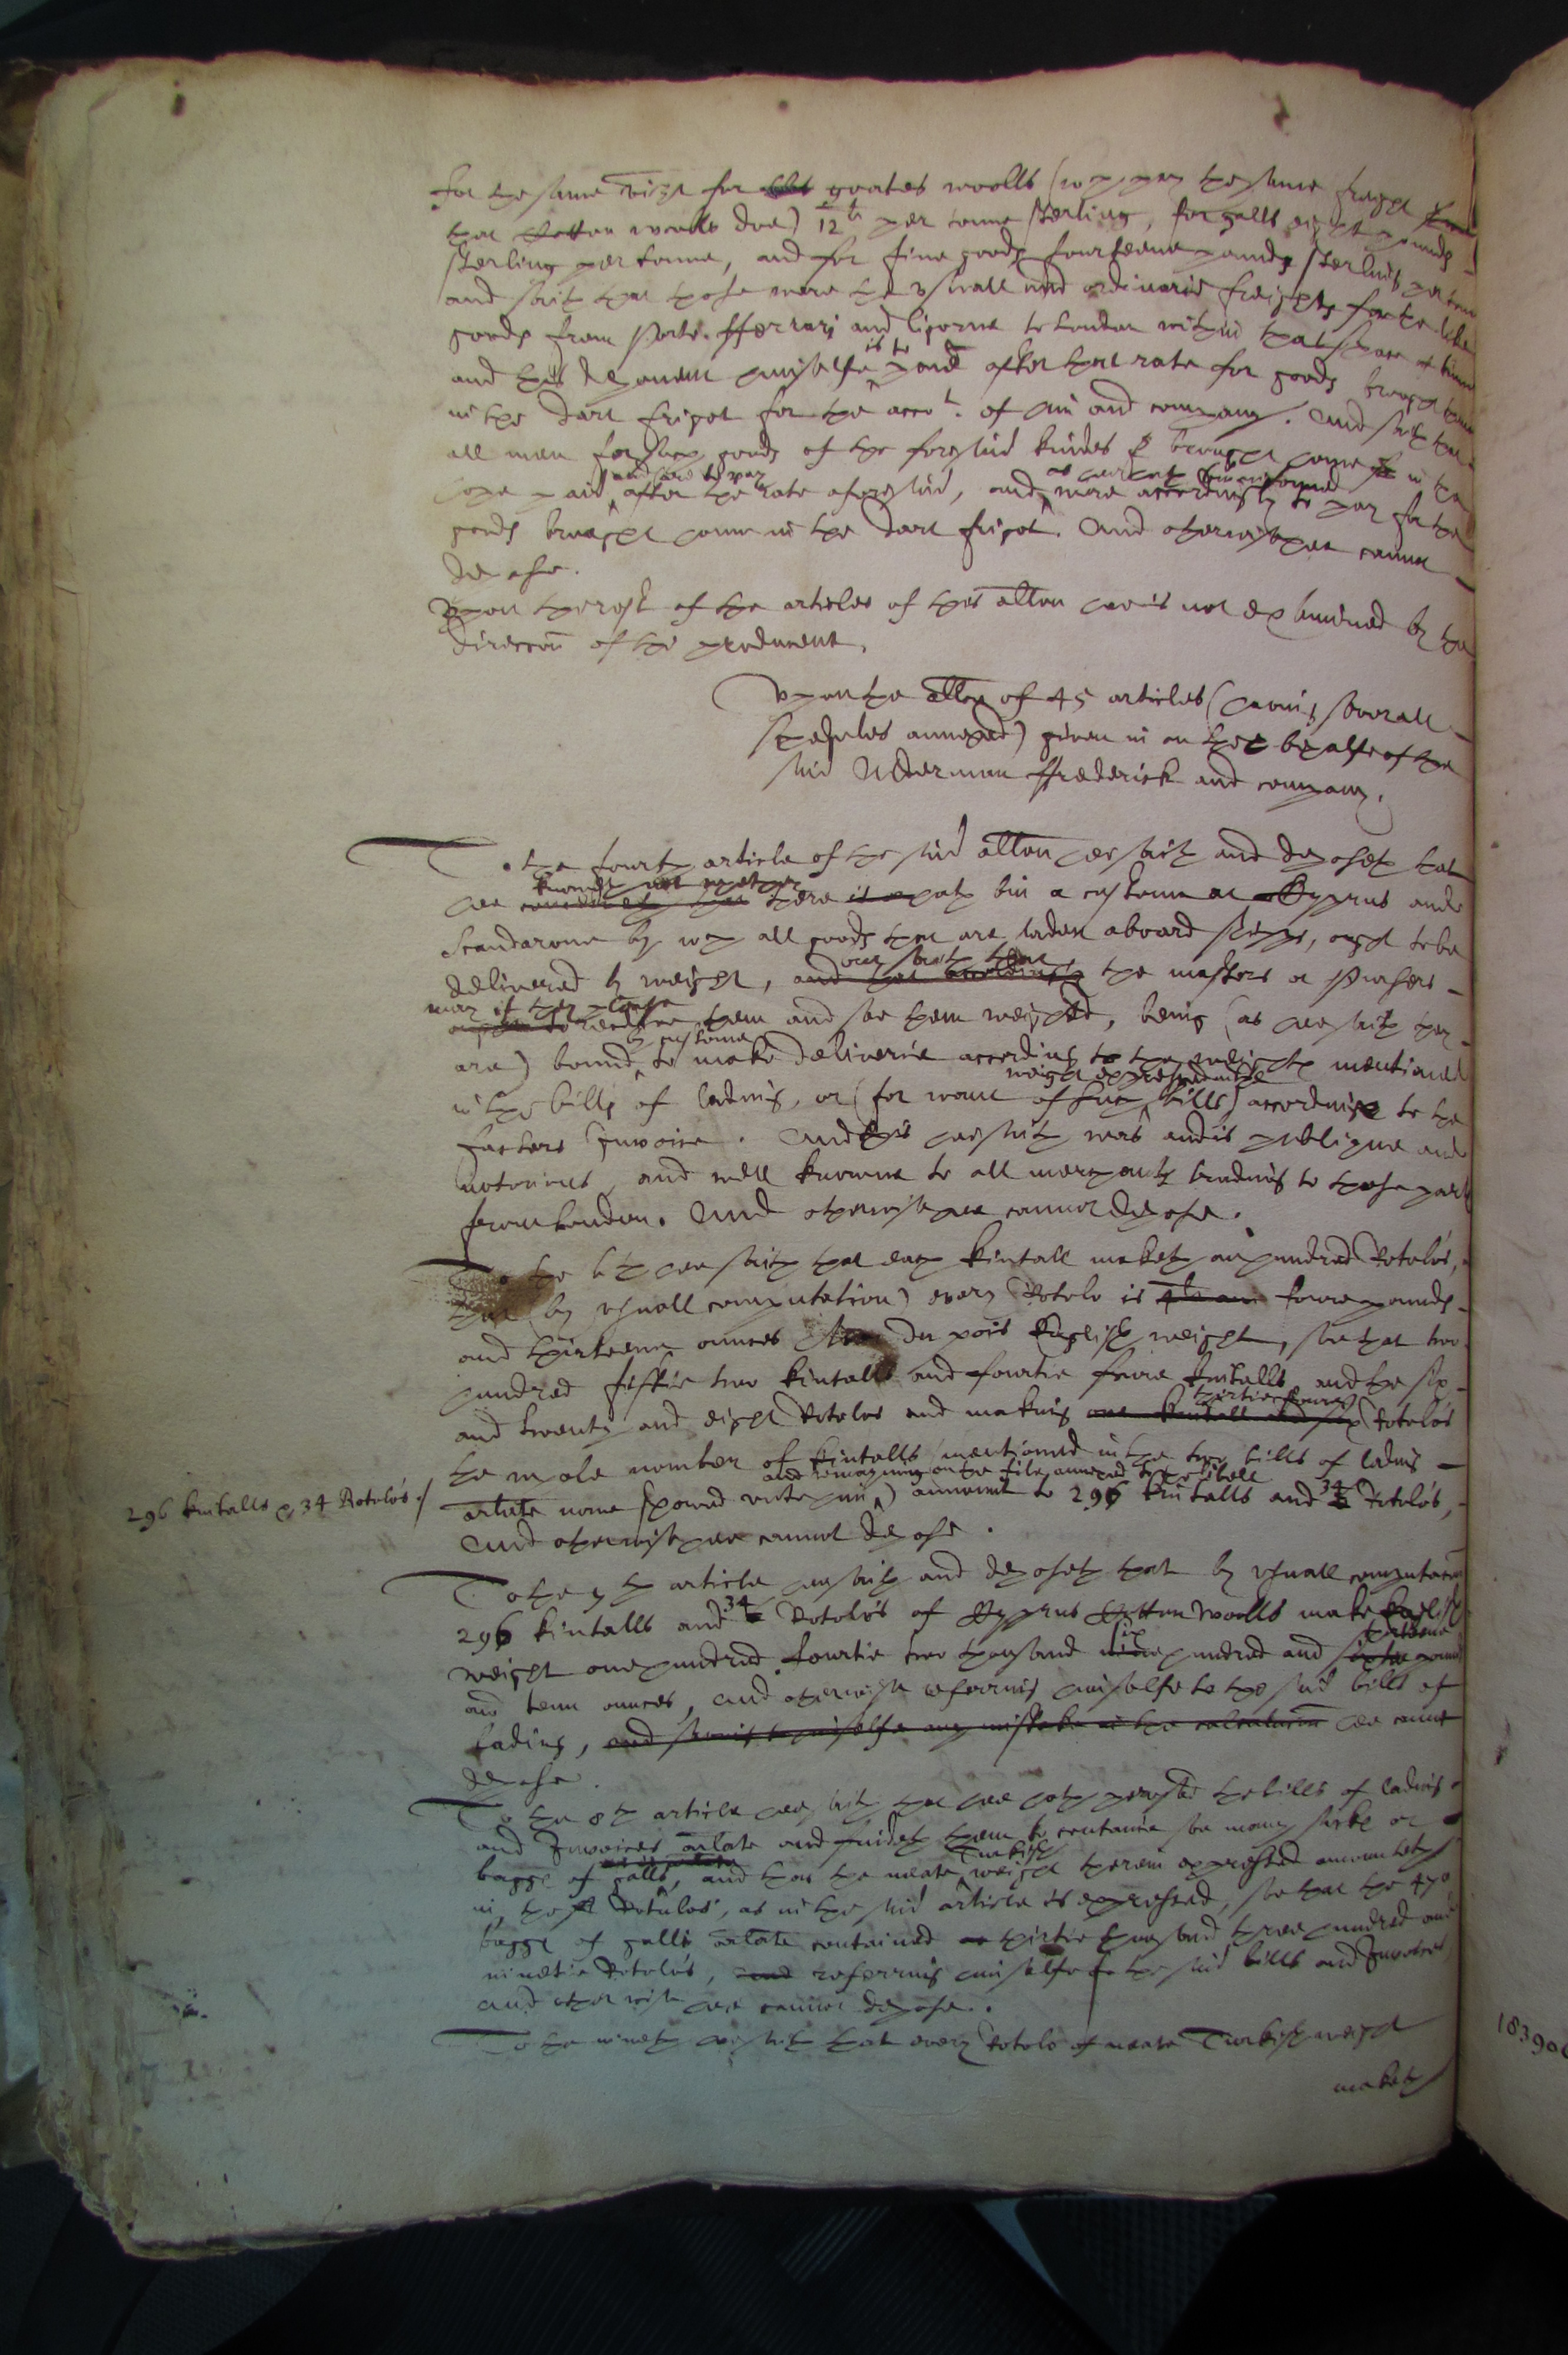 for the same voiage for goates woolls (wch pay the same fraight
that Cotton woolls doe) 12li per tonne sterling, for galls eight pounds
sterling per tonne, and for fine goods fourteene pounds sterling per tonn
and saith that those were the usuall and ordinarie freights for the like
goods from Porto. fferrari and ligorne to London within that space of time
and this deponent himselfe is to paie after that rate for goods brought home
in the dart frigot for the accot. of him and company. And saith that
all men for such goods of the foresaid kindes brought home in the
have paid, and are to pay after the rate aforesaid, and as hee hath bin informed were accordingly to pay for the
goods brought home in the dart frigot. And otherwise hee cannot
depose.
Upon the rest of the articles of this allon hee is not examined by the
direccon of the producent.
Upon the allon of 45 articles (having severall
schedules annexed) given in on the behalfe of the
said Alderman ffrederick and company.
To the fourth article of the said allon hee saith and deposeth that
hee knoweth not whether there hath bin a custome at Cyprus and
Scandarone by wch all goods that are laden aboard shipps, ought to be
delivered by weight, onely saith that the masters or Pursers
may if they please receive them and see them weighed, being (as hee saith they
are) bound by custome to make deliverie according to the weight mentioned
in the bills of lading, or (for want of such weight expressed in the bills) according to the
factors Invoice. And this hee saith was and is publique and
notorious, and well knowne to all merchants trading to those parts
from London. And otherwise hee cannot depose.
To the 6th hee saith that each kintall maketh an hundred Rotolo's,
that (by usuall computation) every Rotolo is foure pounds
and thirteene ounces du pois English weight, soe that two
hundred fiftie two kintalls and fourtie foure kintalls and the six
and twenty and eight Rotolos and making thirtie foure Rotolo's
the whole nomber of kintalls mentioned in the two bills of lading
arlate nowe shewed unto him, and remayning on the file annexed to the libell) amount to 296 kintalls and 34 Rotolo's,
And otherwise hee cannot depose.
296 kintalls & 34 Rotolo's
To the 7th article hee saith and deposeth that by usuall computacon
296 kintalls and 34 Rotolo's of Cyprus Cotton Woolls make English
weight one hundred fourtie two thousand six hundred and thirteene
and tenn ounces, and otherwise referring himselfe to the said bills of
lading, hee cannot
depose.
To the 8th article hee saith that hee hath perused the bills of lading
and Invoices arlate and findeth them to containe soe many sacks or
baggs of galls, and that the neate Turkish weight therein expressed amounteth
in the Rotulos, as in the said article is expressed, soe that the 470
baggs of galls arlate contained thirtie thousand three hundred and
ninetie Rotolo's, referring himselfe to the said bills and Invoices
And otherwise hee cannot depose.
To the nineth hee saith that every Rotolo of neate Turkish weight
maketh